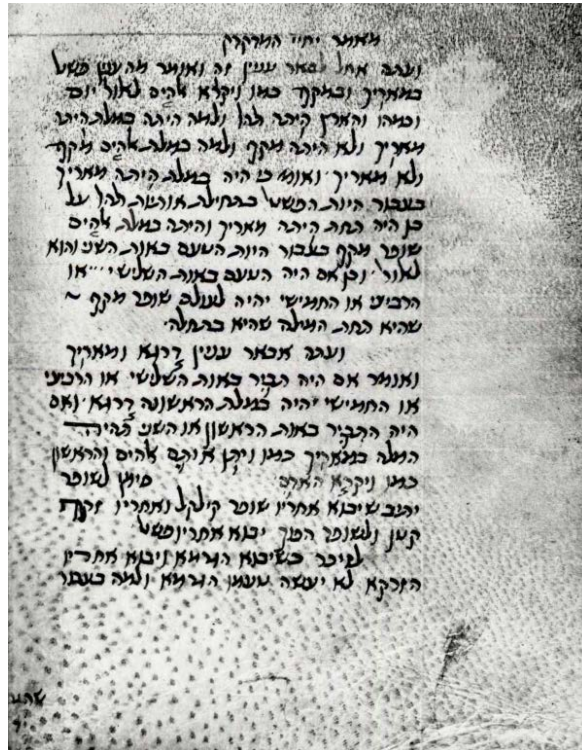 מאמר יחיי המדקדק
ועתה אחל לבאר ענין זה ואומר מה ענין פשט
במאריך ובמקף כמו ויקרא אלהים לאור יום
וכמהו והארץ היתה תהו ולמה היתה במלת היתה
מאריך ולא היתה מקף ולמה במלת אלהים מקף
ולא מאריך ואומ׳ כי היה במלת היתה מאריך
בעבור היות הפשט בתחילת אותיות תהו על
כן היה תחת היתה מאריך והיתה במלת אלהים
שופר מקף בעבור היות הטעם באות השני והוא
לאור וכן אם היה הטעם באות השלישי או
הרביעי או החמישי יהיה לעולם שופר מקף
שהיא תחת המלה שהיא בתחלה
ועתה אבאר ענין דרגא ומאריך
ואומר אם היה תביר באות השלישי או הרביעי
או החמישי יהיה במלת הראשונה דרגא ואם
היה התביר באות הראשון או השני תהיה
המלה במאריך כמו ויתן אותם אלהים והראשון
כמו ויקרא האדם סימן לשופר
יתיב שיבוא אחריו שופר קילקל ואחריו זקף
קטן ולשופר הפוך יבוא אחריו פשט
היזכר כשיבוא הגרמא ויבוא אחריו
הזרקא לא יעשה טעמו הגרמא ולמה בעבור
שהט